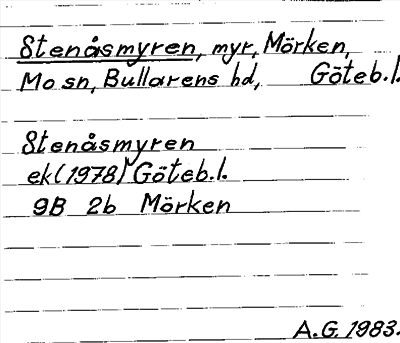 Stenåsmyren, myr, Mörken,
Mo sn, Bullarens hd, Göteb.l.
Stenåsmyren
ek (1978) Göteb.l.
9B 2b Mörken
A.G. 1983.